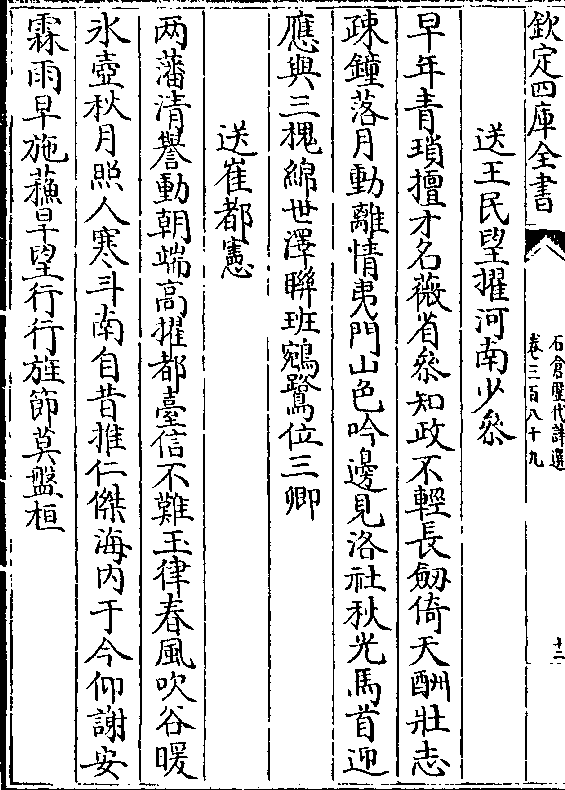 欽定四庫全書
石倉歷代詩選
卷三百八十九
十二
送王民望擢河南少叅
早年青瑣擅才名薇省叅知政不輕長劒倚天酬壯志
疎鐘落月動離情夷門山色吟邊見洛社秋光馬首迎
應與三槐綿世澤聨班鵷鷺位三卿
送崔都憲
两藩清譽動朝端高擢都臺信不難玉律春風吹谷暖
氷壺秋月照人寒斗南自昔推仁傑海内于今仰謝安
霖雨早施蘓旱望行行旌節莫盤桓